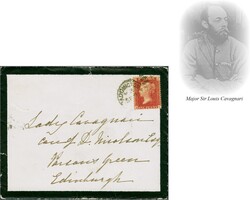 Lady Cavagnari
care of D. Nicolson Esq
Parsons Green
Edinburgh
Major Sir Louis Cavagnari